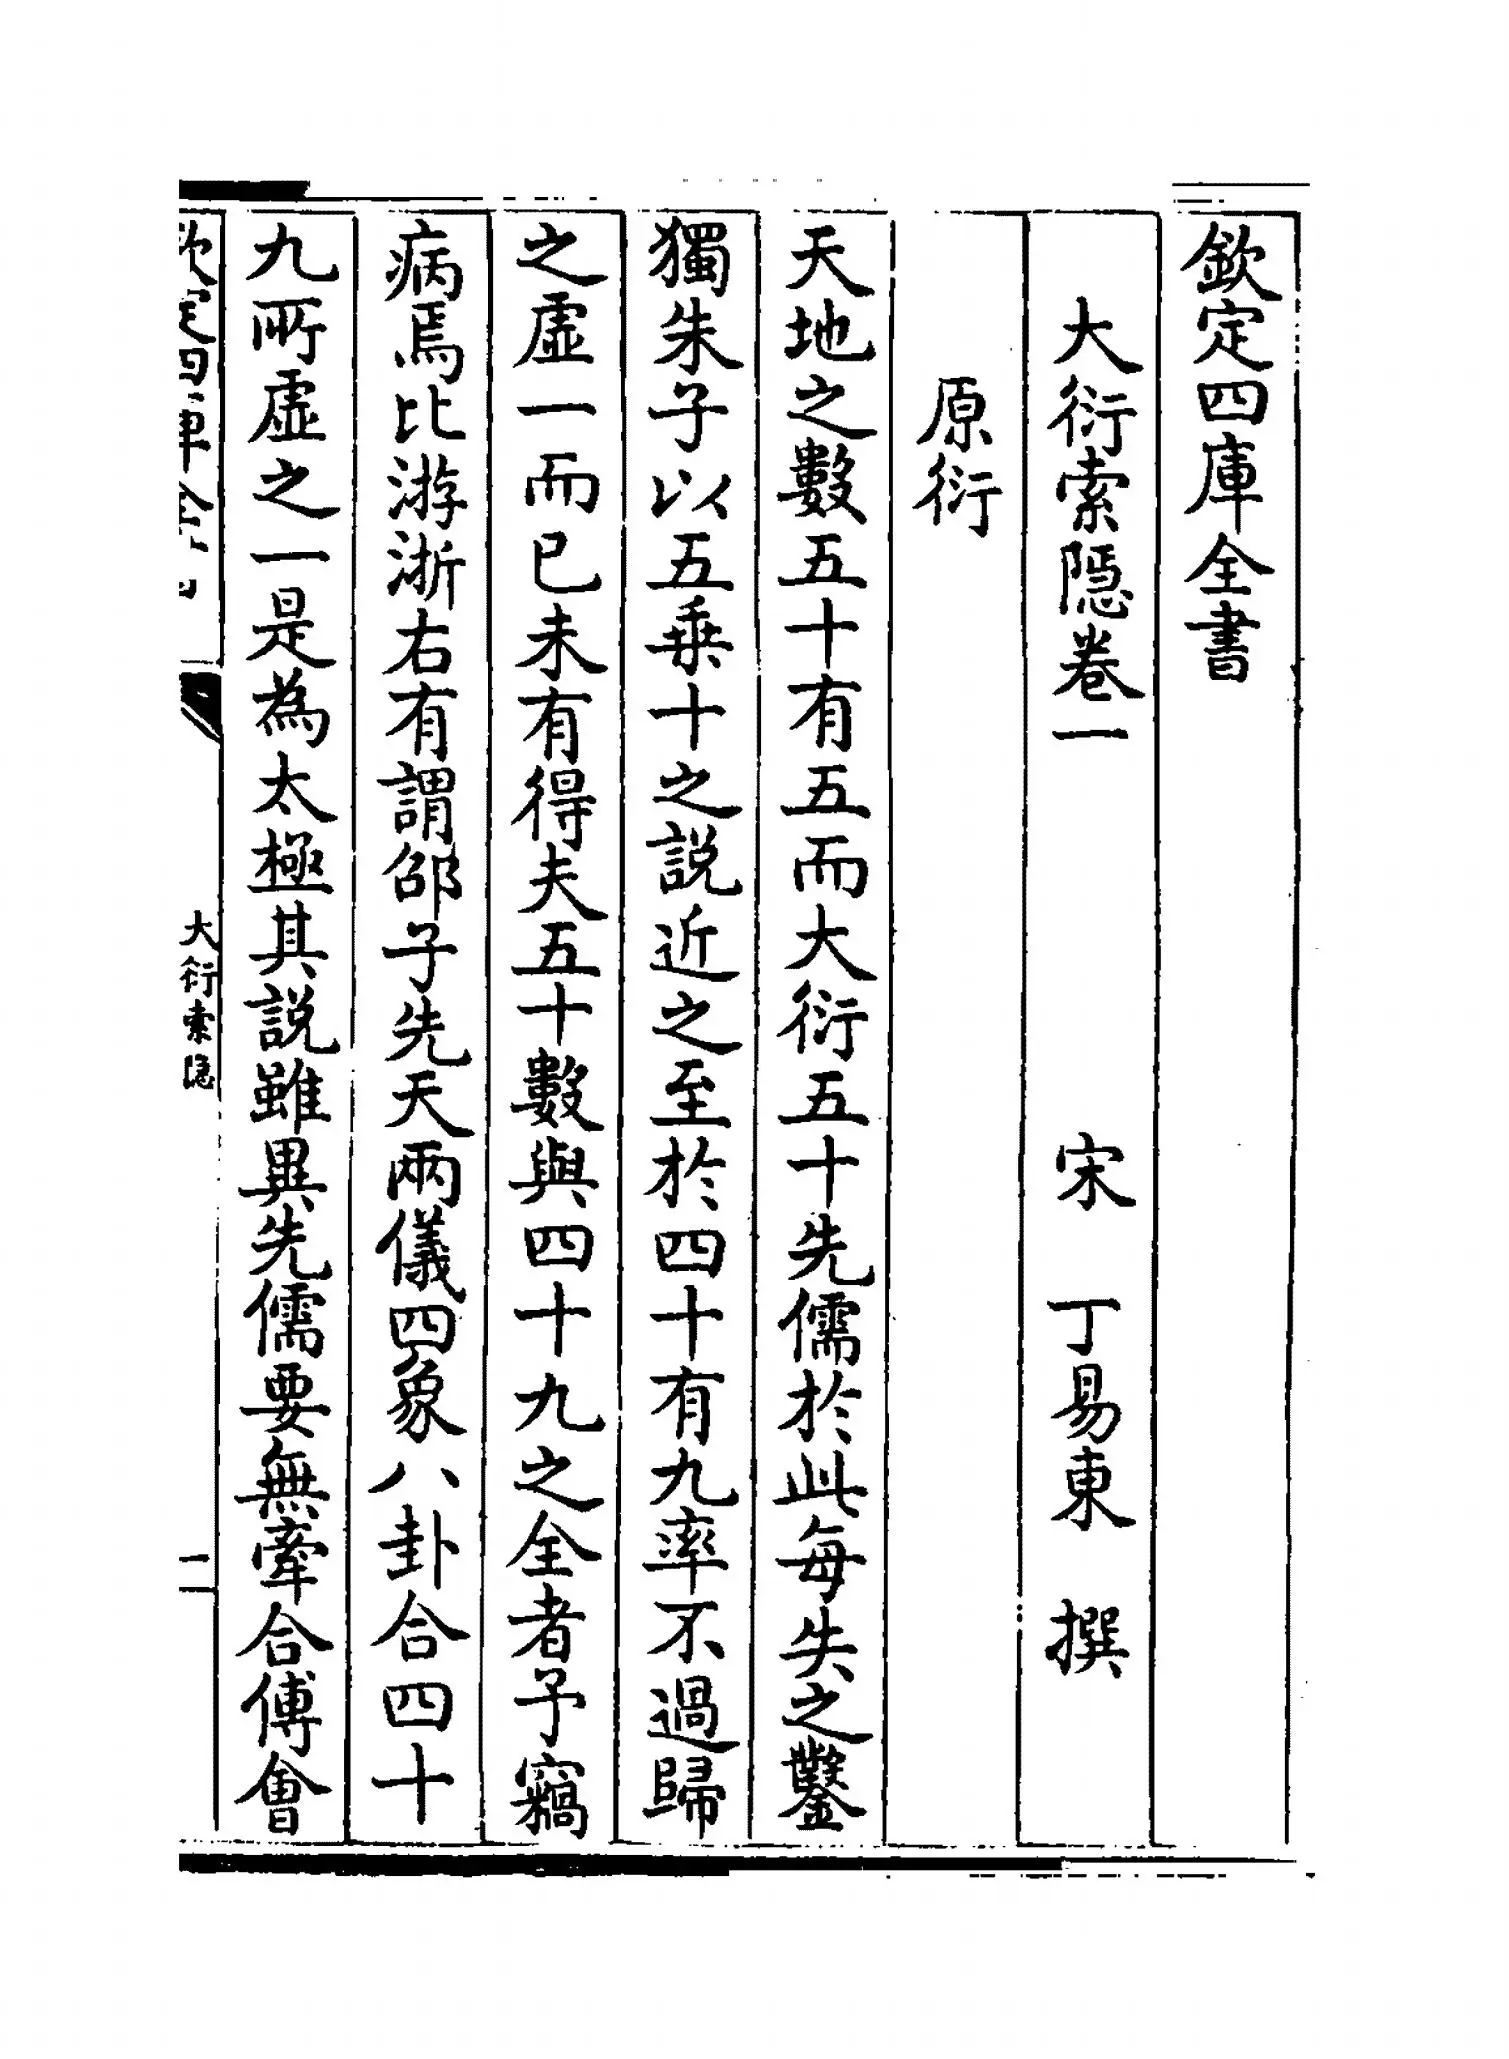 欽定四庫全書
大衍索隱卷一
宋 丁易東 撰
原衍
天地之數五十有五而大衍五十先儒於此每失之鑿
獨朱子以五乗十之説近之至於四十有九率不過歸
之虛一而已未有得夫五十數與四十九之全者予竊
病焉比游浙右有謂邵子先天兩儀四象八卦合四十
九所虛之一是為太極其説雖異先儒要無牽合傅會
欽定四庫全書
大衍索隱
一